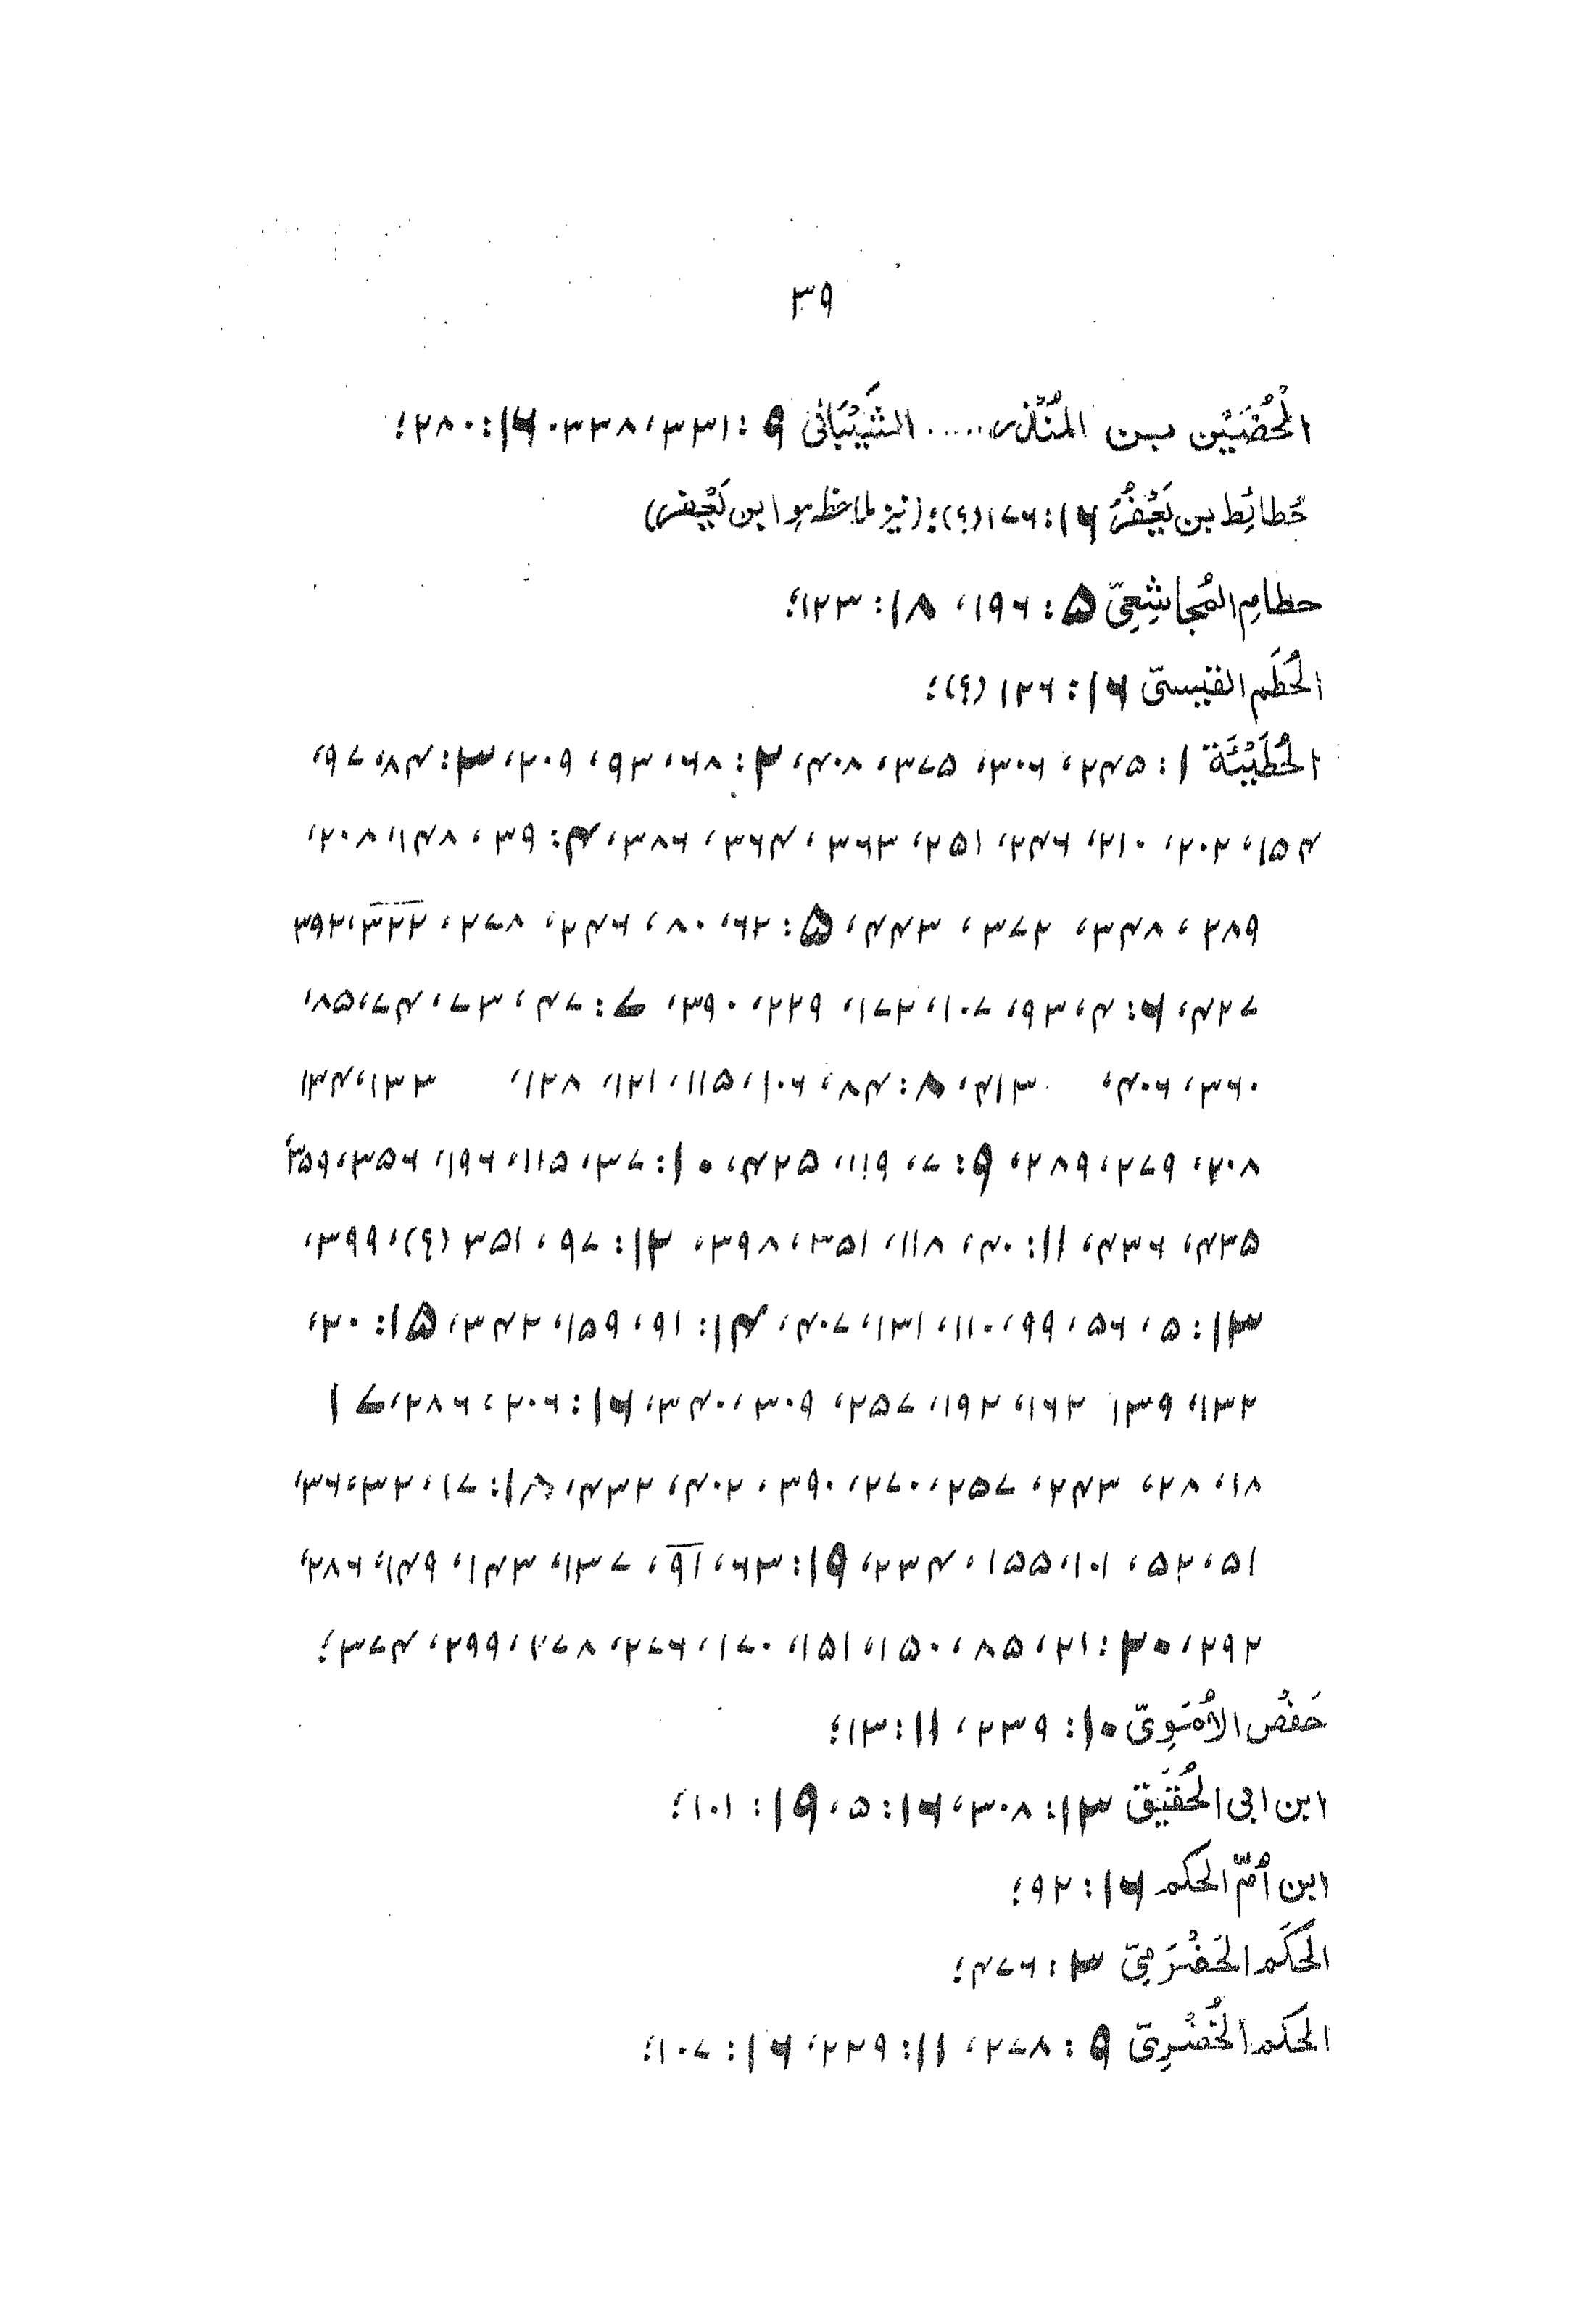 ۳۹
الحُضَيْن بن المُنْذر ..... الشَّيْبَانی ۹: ۳۳۱، ۳۳۸، ۱۶: ۲۸۰؛
حُطائِط بن يَعْفُرُ ۱۶: ۱۷۶ (؟)؛ (نیز ملاحظہ ہو ابن یَعْفُر)
حطام المُجاشِعِیّ ۵: ۱۹۶، ۱۸: ۱۲۳؛
الحُطَم القیسیّ ۱۶: ۱۲۶ (؟)؛
الحُطَيْئَة ۱: ۲۴۵، ۳۰۶، ۳۷۵، ۴۰۸، ۲: ۶۸، ۹۳، ۲۰۹، ۳: ۸۴، ۷۹،
۱۵۴، ۲۰۲، ۲۱۰، ۲۴۶، ۲۵۱، ۳۶۳، ۳۶۴، ۳۸۶، ۴: ۳۹، ۱۴۸، ۲۰۸،
۲۸۹، ۳۴۸، ۳۷۲، ۴۴۳، ۵: ۶۲، ۸۰، ۲۴۶، ۲۷۸، ۳۲۲، ۳۹۲،
۴۲۷، ۶: ۴، ۹۳، ۱۰۷، ۱۷۲، ۲۲۹، ۳۹۰، ۷: ۴۷، ۷۳، ۷۴، ۸۵،
۳۶۰، ۴۰۶، ۴۱۳، ۸: ۸۴، ۱۰۶، ۱۱۵، ۱۲۱، ۱۲۸، ۱۳۳، ۱۳۴
۲۰۸، ۲۷۹، ۲۸۹، ۹: ۷، ۱۱۹، ۴۲۵، ۱۰: ۳۷، ۱۱۵، ۱۹۶، ۳۵۶، ۳۵۹،
۴۳۵، ۴۳۶، ۱۱: ۴۰، ۱۱۸، ۳۵۱، ۳۹۸، ۱۲: ۹۷، ۳۵۱ (؟)، ۳۹۹،
۱۳: ۵، ۵۶، ۹۹، ۱۱۰، ۱۳۱، ۴۰۷، ۱۴: ۹۱، ۱۵۹، ۳۴۲، ۱۵: ۲۰،
۱۳۲، ۱۳۹ ۱۶۲، ۱۹۲، ۲۵۷، ۳۰۹، ۳۴۰، ۱۶: ۲۰۶، ۲۸۶، ۱۷
۱۸، ۲۸، ۲۴۳، ۲۵۷، ۲۷۰، ۳۹۰، ۴۰۲، ۴۳۲، ۱۸: ۱۷، ۳۲، ۳۶،
۵۱، ۵۲، ۱۰۱، ۱۵۵، ۲۳۴، ۱۹: ۶۳، ۹۱، ۱۳۷، ۱۴۳، ۱۴۹، ۲۸۶،
۲۹۲، ۲۰: ۲۱، ۸۵، ۱۵۰، ۱۵۱، ۱۷۰، ۲۷۶، ۲۷۸، ۲۹۹، ۳۷۴؛
حَفْص الأُمَوِیّ ۱۰: ۲۳۹، ۱۱: ۱۳؛
ابن ابی الحُقَیْق ۱۳: ۳۰۸، ۱۶: ۵، ۱۹: ۱۰۱؛
ابن اُمّ الحکم ۱۶: ۹۲؛
الحَکَم الحَضْرَمِیّ ۳: ۴۷۶؛
الحکم الخُضْرِیّ ۹: ۲۷۸، ۱۱: ۲۲۹، ۱۶: ۱۰۷؛